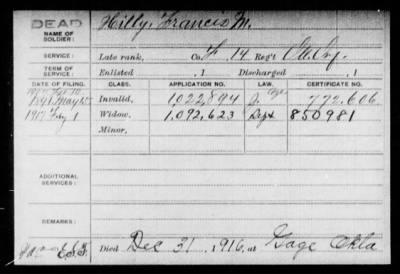 DEAD Hilly, Francis M.
NAME OF
SOLDIER:
SERVICE: Late rank, Co. F, 14 Reg't
TERM OF
SERVICE: Enlisted , 1 Discharged , 1
DATE OF FILING. CLASS. APPLICATION NO. LAW. CERTIFICATE NO.
Invalid, 1,022,894 772,606
1917 Feby 1 Widow, 1,092,623 850981
Minor,
ADDITIONAL
SERVICES:
REMARKS:
Died Dec 31, 1916, at Gage Okla